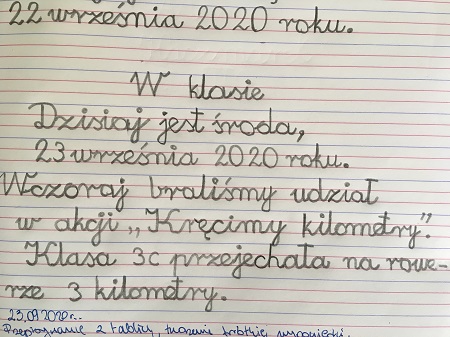 22 września 2020 roku.
W klasie
Dzisiaj jest środa,
23 września 2020 roku.
Wczoraj braliśmy udział
w akcji „Kręcimy kilometry”.
Klasa 3c przejechała na rowe-
rze 3 kilometry.
23.09.2020r.
Przepisywanie z tablicy, tworzenie krótkiej wypowiedzi.